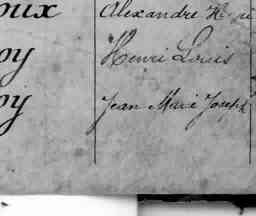 oux Alexandre
oy Henri Louis
oy Jean Marie Joseph